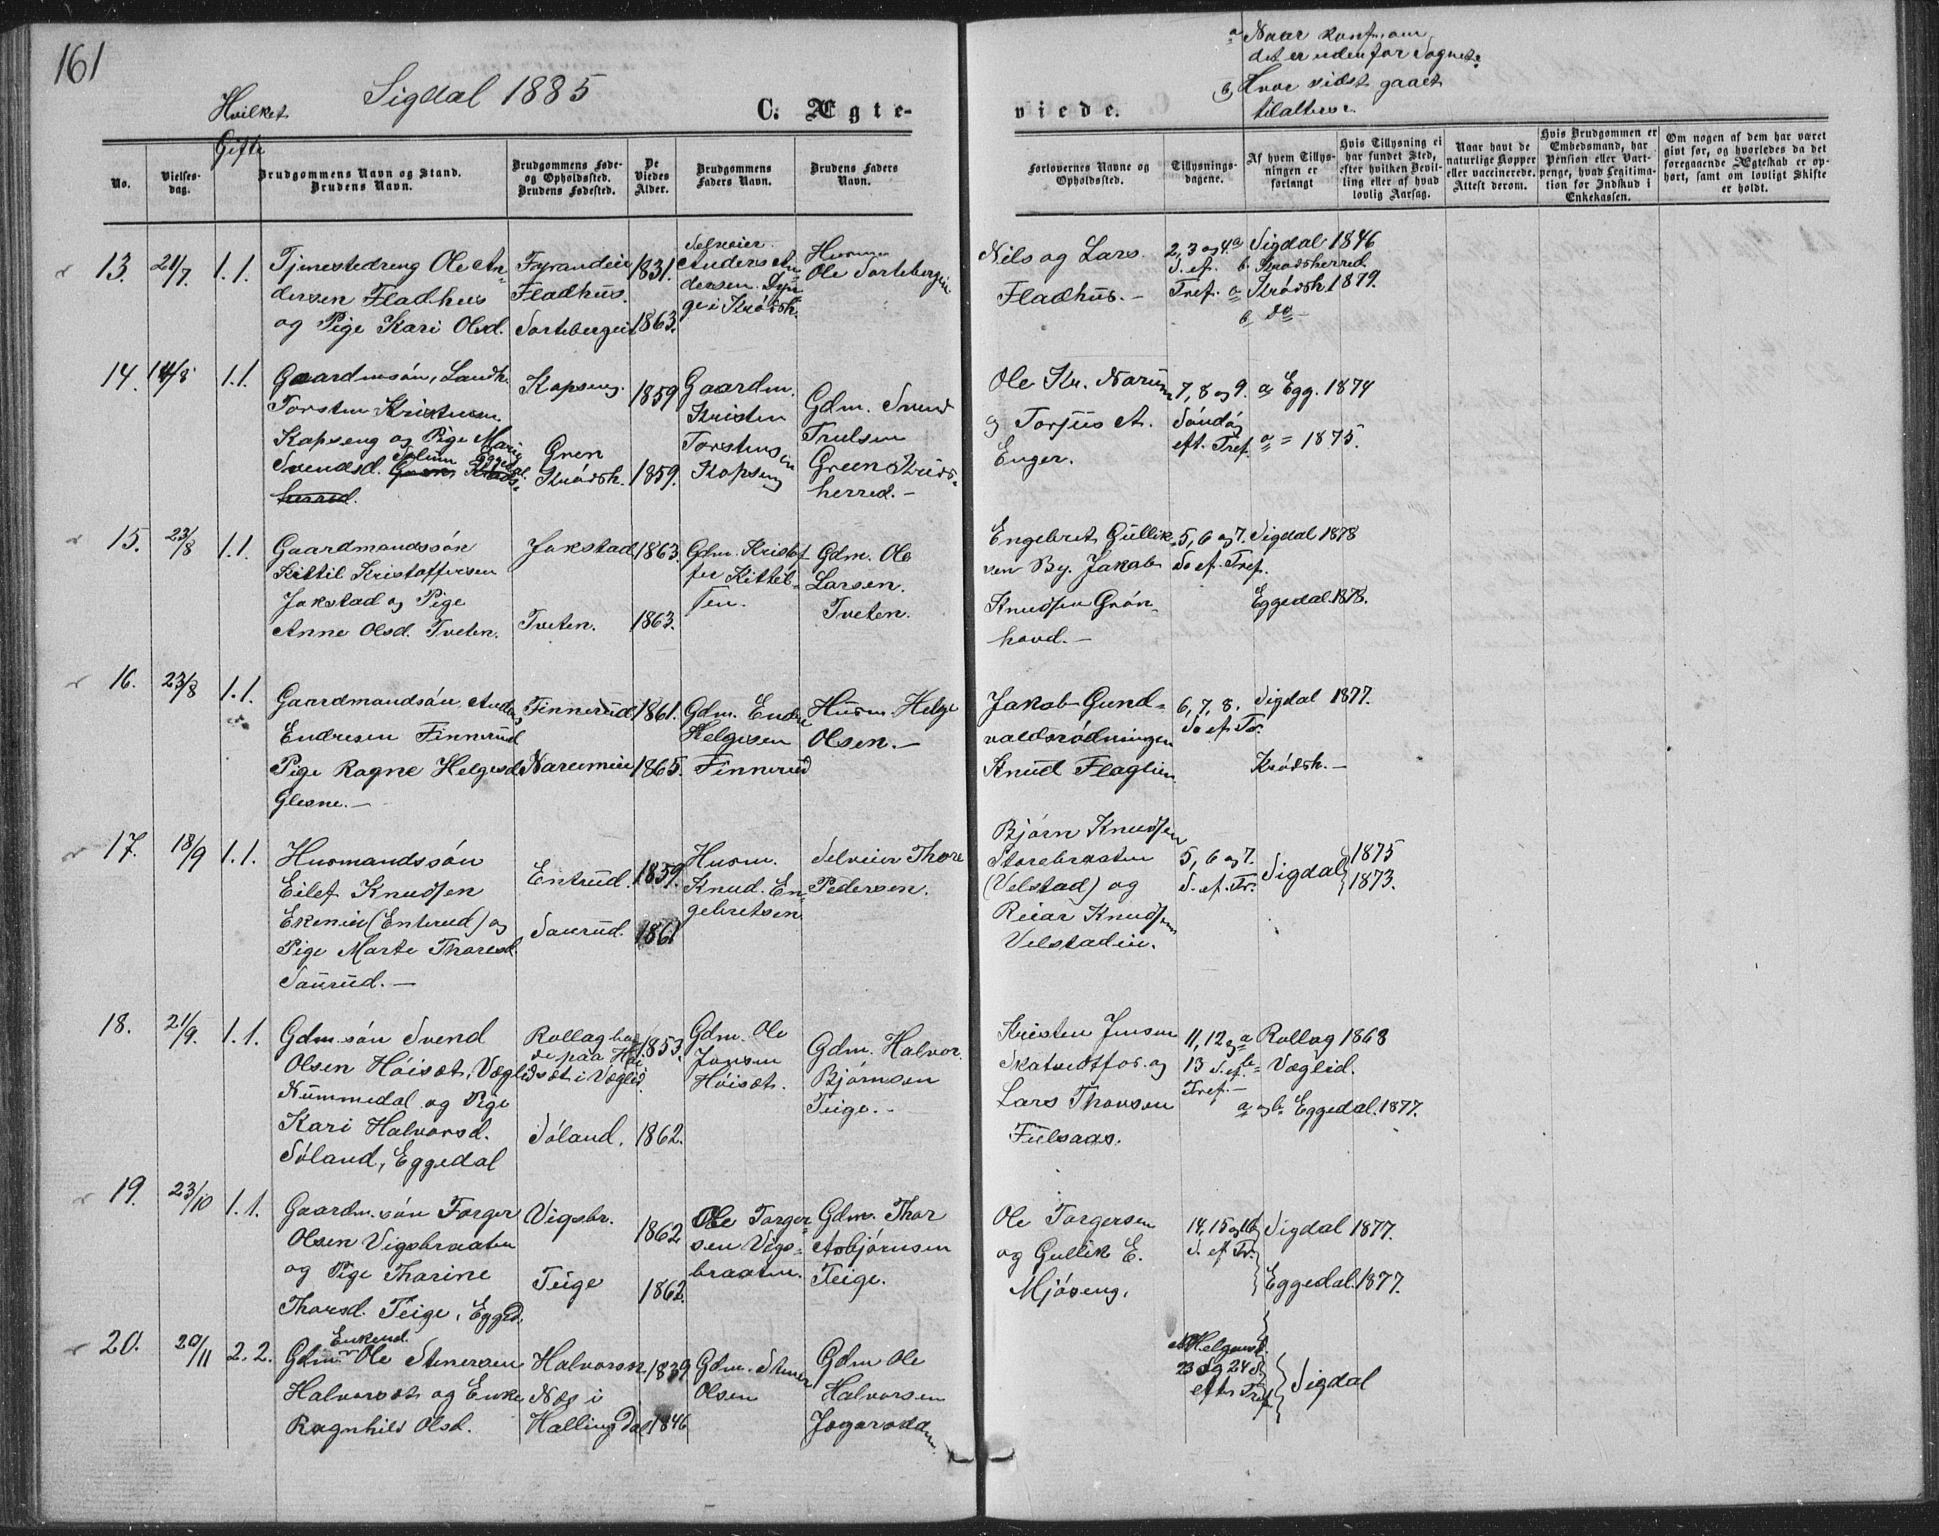 161
Sigdal 1885
Hvilket
Gifte
C. Ægte-
viede.
a Naar konf., om
det er udenfor Sognet.
b) Hvor sidst gaaet
til alters.
No.
Vielses-
dag.
Brudgommens Navn og Stand.
Brudens Navn.
Brudgommens Føde-
og Opholdssted.
Brudens Fødested.
De
Viedes
Alder.
Brudgommens
Faders Navn.
Brudens Faders
Navn.
Forlovernes Navne og
Opholdssted.
Tillysnings-
dagene.
Af hvem Tillys-
ningen er
forlangt
Hvis Tillysning ei
har fundet Sted,
efter hvilken Bevil-
ling eller af hvad
lovlig Aarsag.
Naar havt de
naturlige Kopper
eller vaccinerede.
Attest derom.
Hvis Brudgommen er
Embedsmand, har
Pension eller Vart-
penge, hvad Legitima-
tion for Indskud i
Enkekassen.
Om nogen af dem har været
givt før, og hvorledes da det
foregaaende Ægteskab er op-
hørt, samt om lovligt Skifte
er holdt.
13. 21/7. 1.1.
Tjenestedreng Ole An-
dersen Fladhus
og Pige Kari Olsd.
Fladhus.
1831.
1863.
Selveier
Anders An-
dersen
i Krødsh.
Husm.
Ole
Nils og Lars
Fladhus. —
2, 3 og 4
S. ef.
Tref.
a Sigdal 1846
b. Krødsherred.
a Krødsh. 1879.
b do
14. 14/8 1.1.
Gaardmsøn, Landh.
Torsten Kristensen
Kopseng og Pige Marie
Svendsd. Solum Eggedal
herred.
Kopseng.
Gren
Krødsh.
1859
1859.
Gaardm.
Kristen
Torstensen
Kopseng
Gdm. Svend
Trulsen
Green Krøds-
herred. —
Ole Kr. Narum
og Torjus A.
Enger.
7, 8 og 9.
Søndag
eft. Tref.
a Egg. 1874
a = 1875.
15. 23/8 1.1.
Gaardmandssøn
Kittil Kristoffersen
Jokstad og Pige
Anne Olsd. Tveten.
Jokstad
Tveten.
1863.
1863.
Gdm. Kristof-
fer Kittil-
sen.
Gdm. Ole
Larsen.
Tveten.
Engebret Gullik-
sen By. Jakob
Knudsen Grøn-
hovd. —
5, 6 og 7.
So ef. Tref.
Sigdal 1878
Eggedal. 1878.
16. 23/8 1.1.
Gaardmandssøn, Anders
Endresen Finnerud
Pige Ragne Helgesd.
Glesne. —
Finnerud
Narumeie
1861.
1865.
Gdm. Endre
Helgesen
Finnerud
Husm. Helge
Olsen. —
Jakob Gund-
valdsrødningen
Knud Flaglien
6, 7, 8.
So ef. Tr.
Sigdal 1877.
Krødsh. —
17. 18/9 1.1.
Husmandssøn
Eilef Knudsen
Ekeneie (Enterud) og
Pige Marte Thoresd.
Saurud. —
Entrud.
Saurud.
1859.
1861
Husm.
Knud En-
gebretsen
Selveier Thore
Pedersen.
Bjørn Knudsen
Storebraaten
(Velstad) og
Reiar Knudsen
Velstadeie.
5, 6 og 7.
S. ef. Tr.
Sigdal
1875
1873.
18. 21/9. 1.1.
Gdm. søn Svend
Olsen Høisæt, Væglid
Nummedal og Pige
Kari Halvorsd.
Søland, Eggedal
Rollag bo-
de paa Høi-
sæt i Væglid
Søland.
1853.
1862.
Gdm. Ole
Jonsen
Høisæt.
Gdm. Halvor
Bjørnsen
Teige. -
Kristen Jensen
Skatvedtfos. og
Lars Thovsen
Fulsaas.
11, 12 og
13 S. ef.
Tref. —
a Rollag 1868
b = Væglid.
a og b. Eggedal. 1877.
19. 23/10 1.1.
Gaardm. søn Torger
Olsen Vigsbraaten
og Pige Thorine
Thorsd. Teige, Eggd.
Vigsbr.
Teige
1862
1862.
Ole Torger-
sen Vigs-
braaten.
Gdm. Thor
Asbjørnsen
Teige.
Ole Torgersen
og Gullik E.
Mjøseng.
14, 15 og 16
S. ef. Tr.
Sigdal 1877.
Eggedal. 1877.
20. 20/11 2.2.
Enkemd.
Gdm. Ole Stenersen
Halvorsæt og Enke
Ragnhild Olsd.
Næs i
Hallingdal
1839
1846
Gdm. Stener
Olsen
Gdm Ole
Halvorsen
23 og 24 S.
efter Tref.
Sigdal